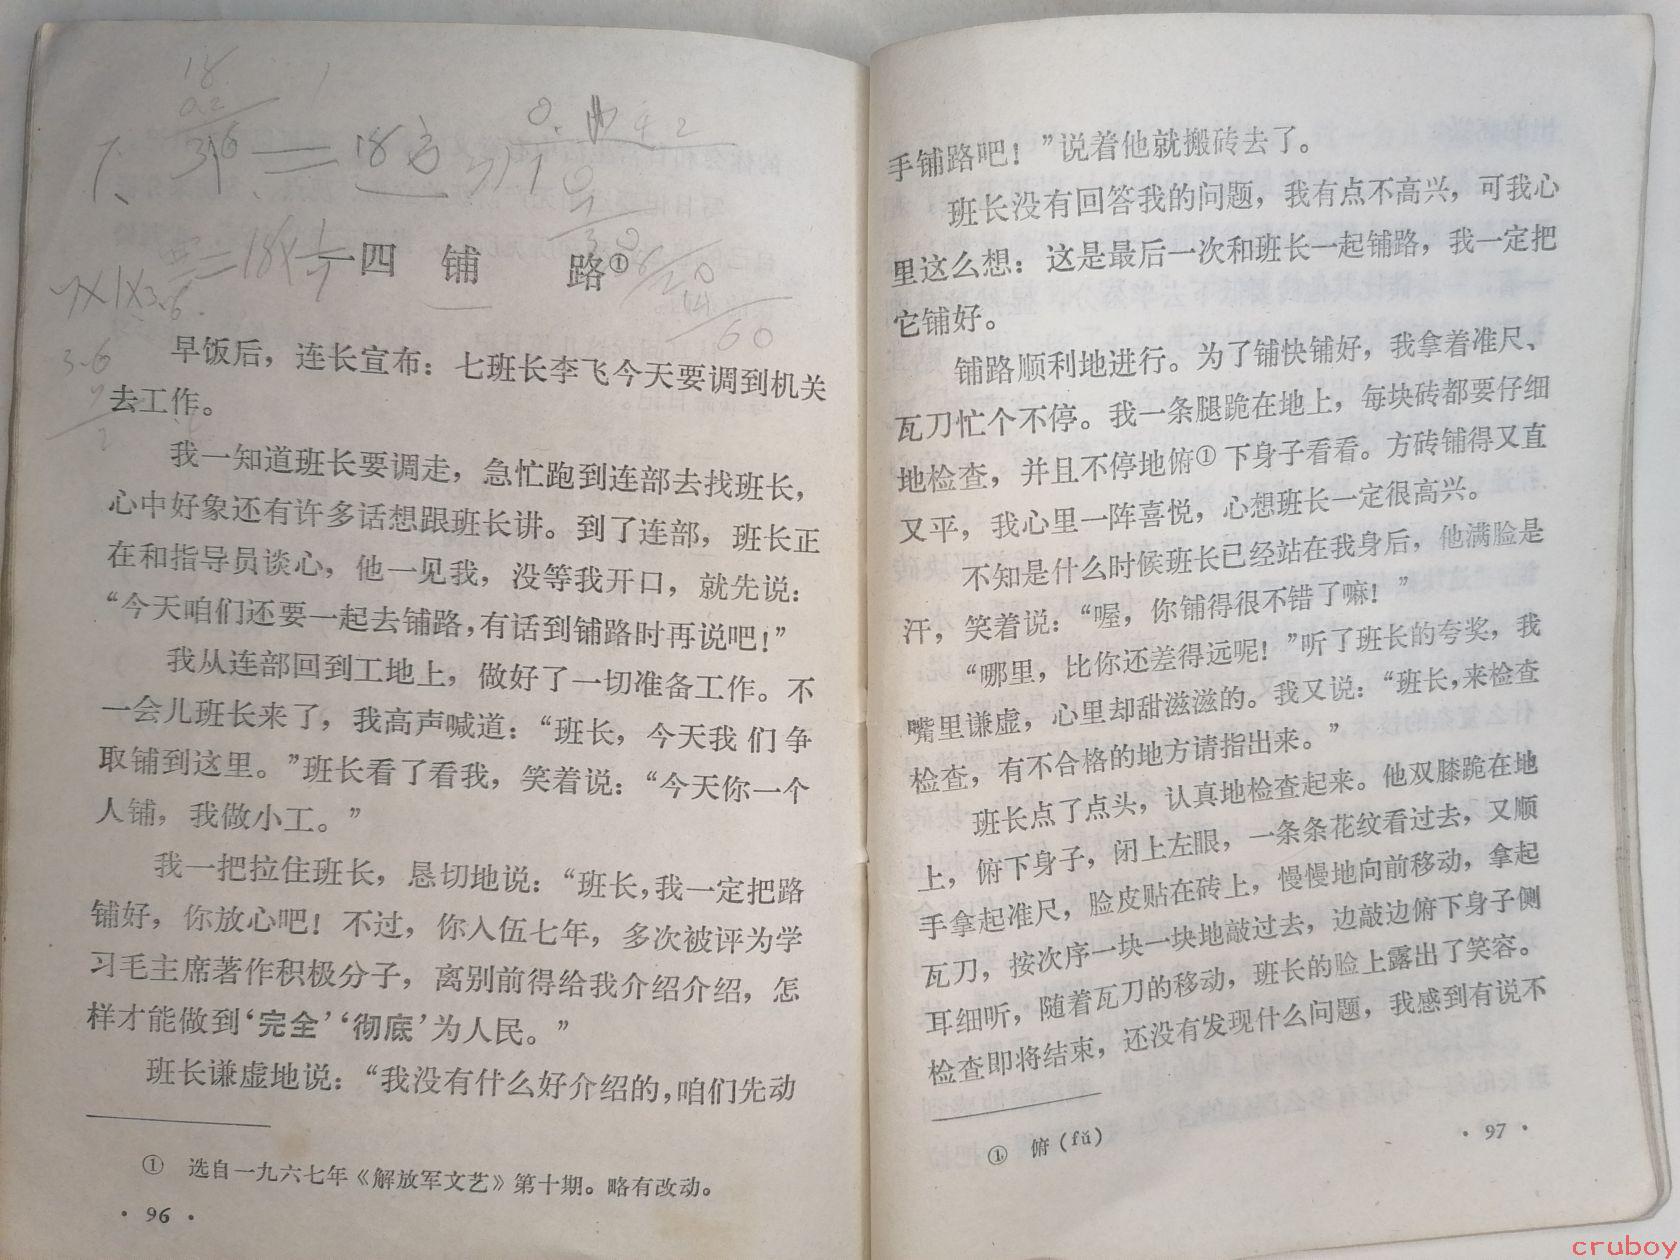 18
0.2
3.6
18
一四 铺 路①
7×1×3.6
3.6
60
早饭后，连长宣布：七班长李飞今天要调到机关
去工作。
我一知道班长要调走，急忙跑到连部去找班长，
心中好象还有许多话想跟班长讲。到了连部，班长正
在和指导员谈心，他一见我，没等我开口，就先说：
“今天咱们还要一起去铺路，有话到铺路时再说吧！”
我从连部回到工地上，做好了一切准备工作。不
一会儿班长来了，我高声喊道：“班长，今天我们争
取铺到这里。”班长看了看我，笑着说：“今天你一个
人铺，我做小工。”
我一把拉住班长，恳切地说：“班长，我一定把路
铺好，你放心吧！不过，你入伍七年，多次被评为学
习毛主席著作积极分子，离别前得给我介绍介绍，怎
样才能做到‘完全’‘彻底’为人民。”
班长谦虚地说：“我没有什么好介绍的，咱们先动
① 选自一九六七年《解放军文艺》第十期。略有改动。
· 96 ·
手铺路吧！”说着他就搬砖去了。
班长没有回答我的问题，我有点不高兴，可我心
里这么想：这是最后一次和班长一起铺路，我一定把
它铺好。
铺路顺利地进行。为了铺快铺好，我拿着准尺、
瓦刀忙个不停。我一条腿跪在地上，每块砖都要仔细
地检查，并且不停地俯①下身子看看。方砖铺得又直
又平，我心里一阵喜悦，心想班长一定很高兴。
不知是什么时候班长已经站在我身后，他满脸是
汗，笑着说：“喔，你铺得很不错了嘛！”
“哪里，比你还差得远呢！”听了班长的夸奖，我
嘴里谦虚，心里却甜滋滋的。我又说：“班长，来检查
检查，有不合格的地方请指出来。”
班长点了点头，认真地检查起来。他双膝跪在地
上，俯下身子，闭上左眼，一条条花纹看过去，又顺
手拿起准尺，脸皮贴在砖上，慢慢地向前移动，拿起
瓦刀，按次序一块一块地敲过去，边敲边俯下身子侧
耳细听，随着瓦刀的移动，班长的脸上露出了笑容。
检查即将结束，还没有发现什么问题，我感到有说不
① 俯（fǔ）
· 97 ·
cruboy